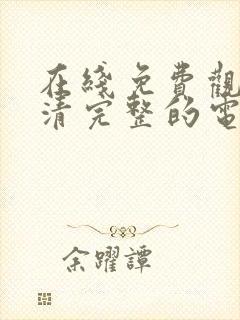 在綫免費觀
清完整的電
余躍譚